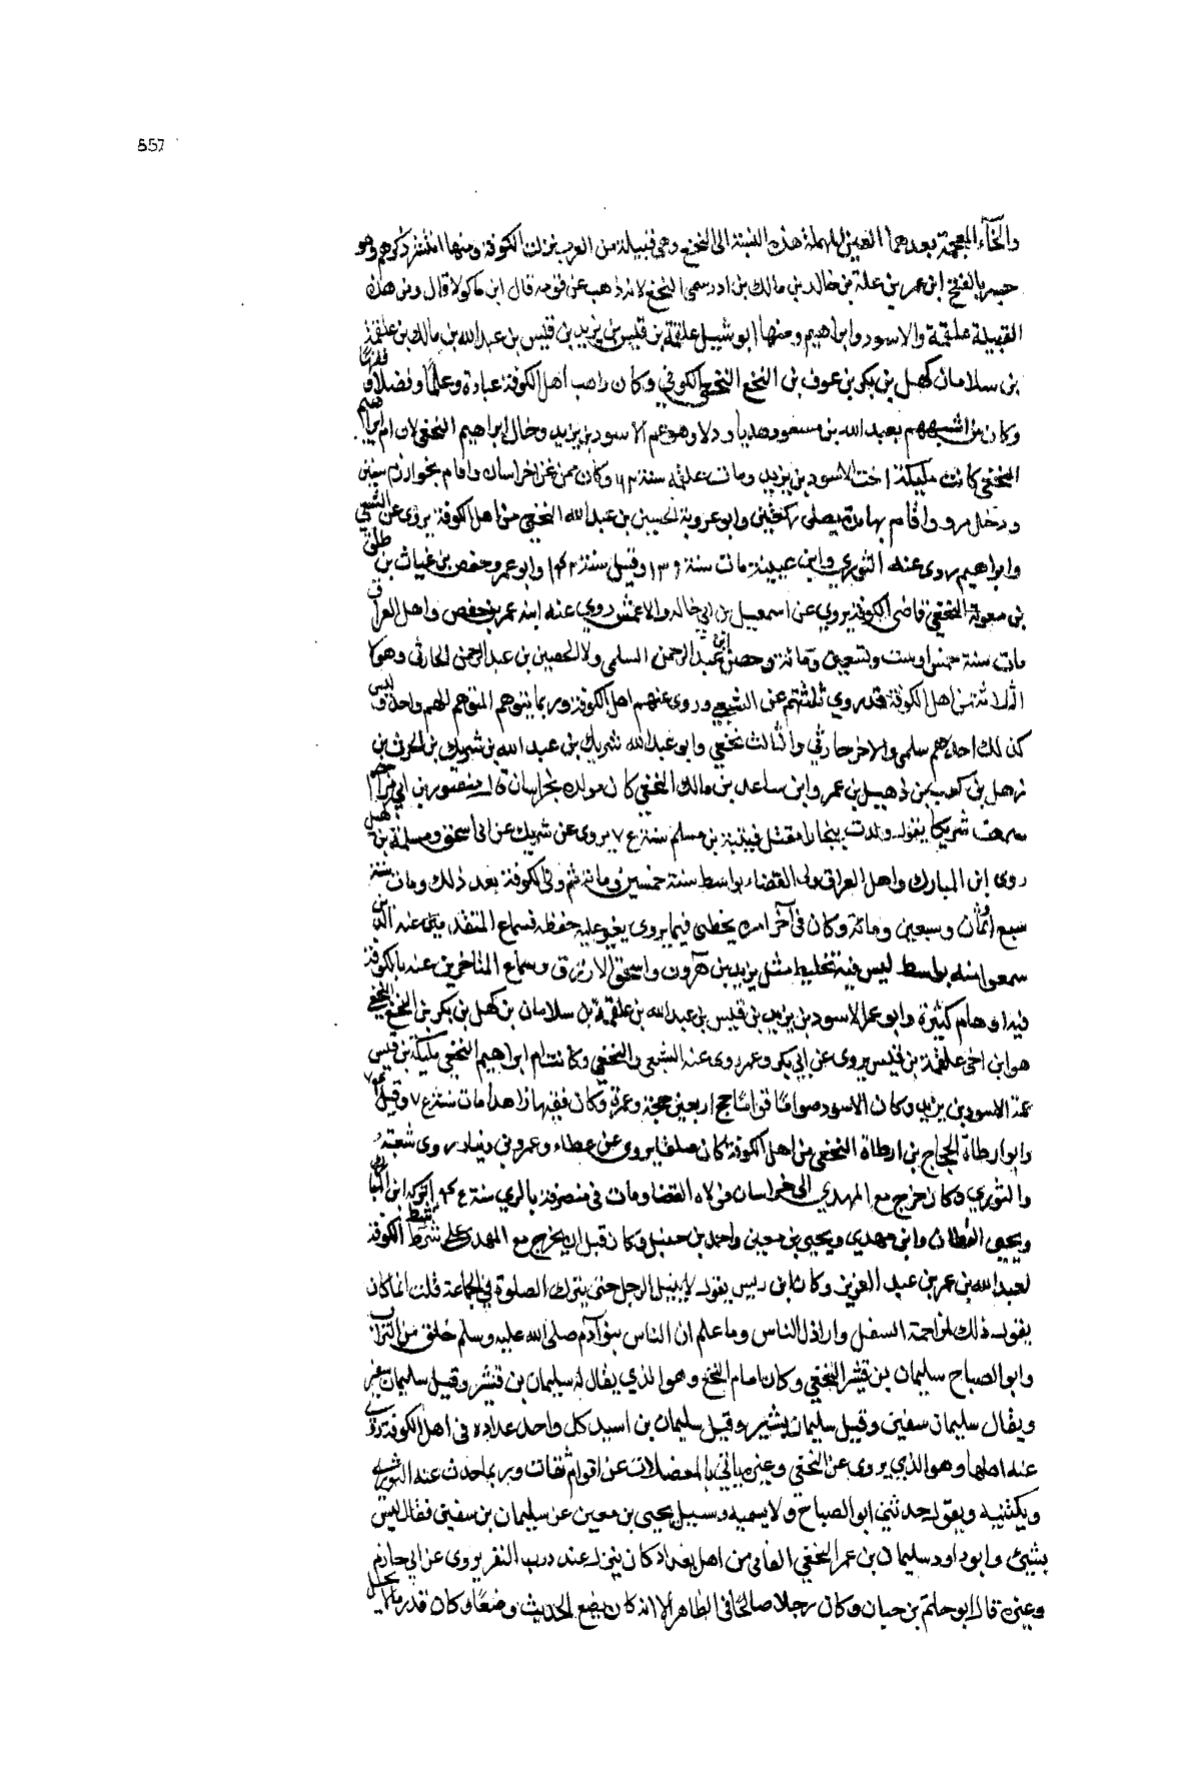 557
والخاء المعجمة بعدهما العين المهملة هذه النسبة الى النخع وهي قبيلة من العرب نزلت الكوفة ومنها انتشر ذكرهم وهو
جسر بالفتح ابن عمر بن علة بن خالد بن مالك بن ادد سمى النخع لانه ذهب عن قومه قال ابن ماكولا قال ومن هذه
القبيلة علقمة والاسود وابراهيم ومنها ابو شبيل علقمة بن قيس بن يزيد بن قيس بن عبد الله بن مالك بن علقمة
بن سلامان كهل بن بكر بن عوف بن النخع النخعي الكوفي وكان راهب اهل الكوفة عبادة وعلما وفضلا وفقها
وكان من اشبههم بعبد الله بن مسعود هديا ودلا وهو عم الاسود بن يزيد وخال ابراهيم النخعي لان ام ابراهيم
النخعي كانت مليكة اخت الاسود بن يزيد ومات علقمة سنة ٦٢ وكان ممن غزا خراسان واقام بخوارزم سنين
ودخل مرو واقام بها مدة يصلي ركعتين وابو عروبة الحسين بن عبد الله النخعي من اهل الكوفة يروى عن الشعبي
وابراهيم روى عنه الثوري وابن عيينة مات سنة ١٣٩ وقيل سنة ١٤٢ وابو عمر وحفص بن غياث بن طلق
بن معوية النخعي قاضى الكوفة يروي عن اسمعيل بن ابي خالد والاعمش روي عنه ابنه عمر بن حفص واهل العراق
مات سنة خمس او ست وتسعين ومائة وحصين بن عبد الرحمن السلمى ولا الحصين بن عبد الرحمن الحارثى وهوكا
الثلاثة من اهل الكوفة قد روي ثلثتهم عن الشعبي وروى عنهم اهل الكوفة وربما يتوهم المتوهم انهم واحد وليس
كذلك احدهم سلمى والاخر حارثي والثالث نخعي وابو عبد الله شريك بن عبد الله بن شريك بن الحرث بن
زهل بن كعب من ذهبيل بن عمر وابن ساعد بن مالك النخعي كان مولده بخراسان قال منصور بن ابي مزاحم
سمعت شريكا يقول ولدت ببخارا مقتل قتيبة بن مسلم سنة ٧٤ يروى عن شريك عن ابى اسحق ومسلمة بن كهيل
روى ابن المبارك واهل العراق ولى القضاء بواسط سنة خمسين ومائة ثم ولى الكوفة بعد ذلك ومات سنة
سبع او ثمان وسبعين ومائة وكان في آخر امره يخطى فيما يروى يغير عليه حفظه فسماع المتقدمين عنه الذين
سمعوا منه بواسط ليس فيه تخليط مثل يزيد بن هرون واسحق الازرق وسماع المتاخرين عنه بالكوفة
فيه اوهام كثيرة وابو عمر الاسود بن يزيد بن قيس بن عبد الله بن علقمة بن سلامان بن كهل بن بكر بن النخع النخعي
هو ابن اخى علقمة بن قيس يروى عن ابي بكر وعمر روى عنه الشعبى والنخعي وكانت ام ابراهيم النخعي مليكة بن قيس
عمة الاسود بن يزيد وكان الاسود صواما قواما حج اربعين حجة وعمرة وكان فقيها زاهدا مات سنة ٧٤ وقيل ٧٥
وابو ارطاة الحجاج بن ارطاة النخعي من اهل الكوفة كان صلفا يروى عن عطاء وعمرو بن دينار روى شعبة
والثوري وكان خرج مع المهدي الى خراسان فولاه القضا ومات فى منصرفه بالري سنة تركه ابن المبارك
ويحيى القطان وابن مهدي ويحيى بن معين واحمد بن حنبل وكان قبل ان يخرج مع المهدى على شرطة الكوفة
لعبد الله بن عمر بن عبد العزيز وكان ابن ريس يقول لا ينبل الرجل حتى يترك الصلوة في الجماعة قلت انما كان
يقول ذلك لمزاحمة السفل واراذل الناس وما علم ان الناس بنو آدم صلى الله عليه وسلم خلق من التراب
وابو الصباح سليمان بن قيشر النخعي وكان امام النخع وهو الذي يقال له سليمان بن قنشر وقيل سليمان سفر
ويقال سليمان سفين وقيل سليمان بشير وقيل سليمان بن اسيد كل واحد عداده فى اهل الكوفة روى
عنه اهلها وهو الذي يروى عن النخعي وغيره ياتى بالمعضلات عن اقوام ثقات وربما حدث عنه الثوري
ويكنيه ويقول حدثني ابو الصباح ولا يسميه وسيل يحيى بن معين عن سليمان بن سفين فقال ليس
بشيئ وابو داود سليمان بن عمر النخعي العامى من اهل بغداد كان ينزل عند درب النقر يروى عن ابي حازم
وغيره قال ابو حاتم بن حبان وكان رجلا صالحا فى الظاهر الا انه كان يضع الحديث وضعا وكان قدريا لا يحل